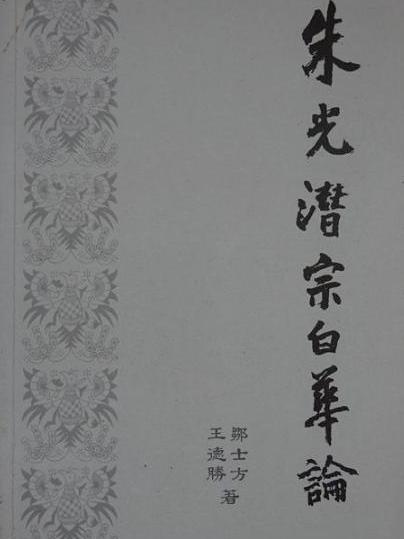 朱光潛宗白華論
鄒士方
王德勝
著